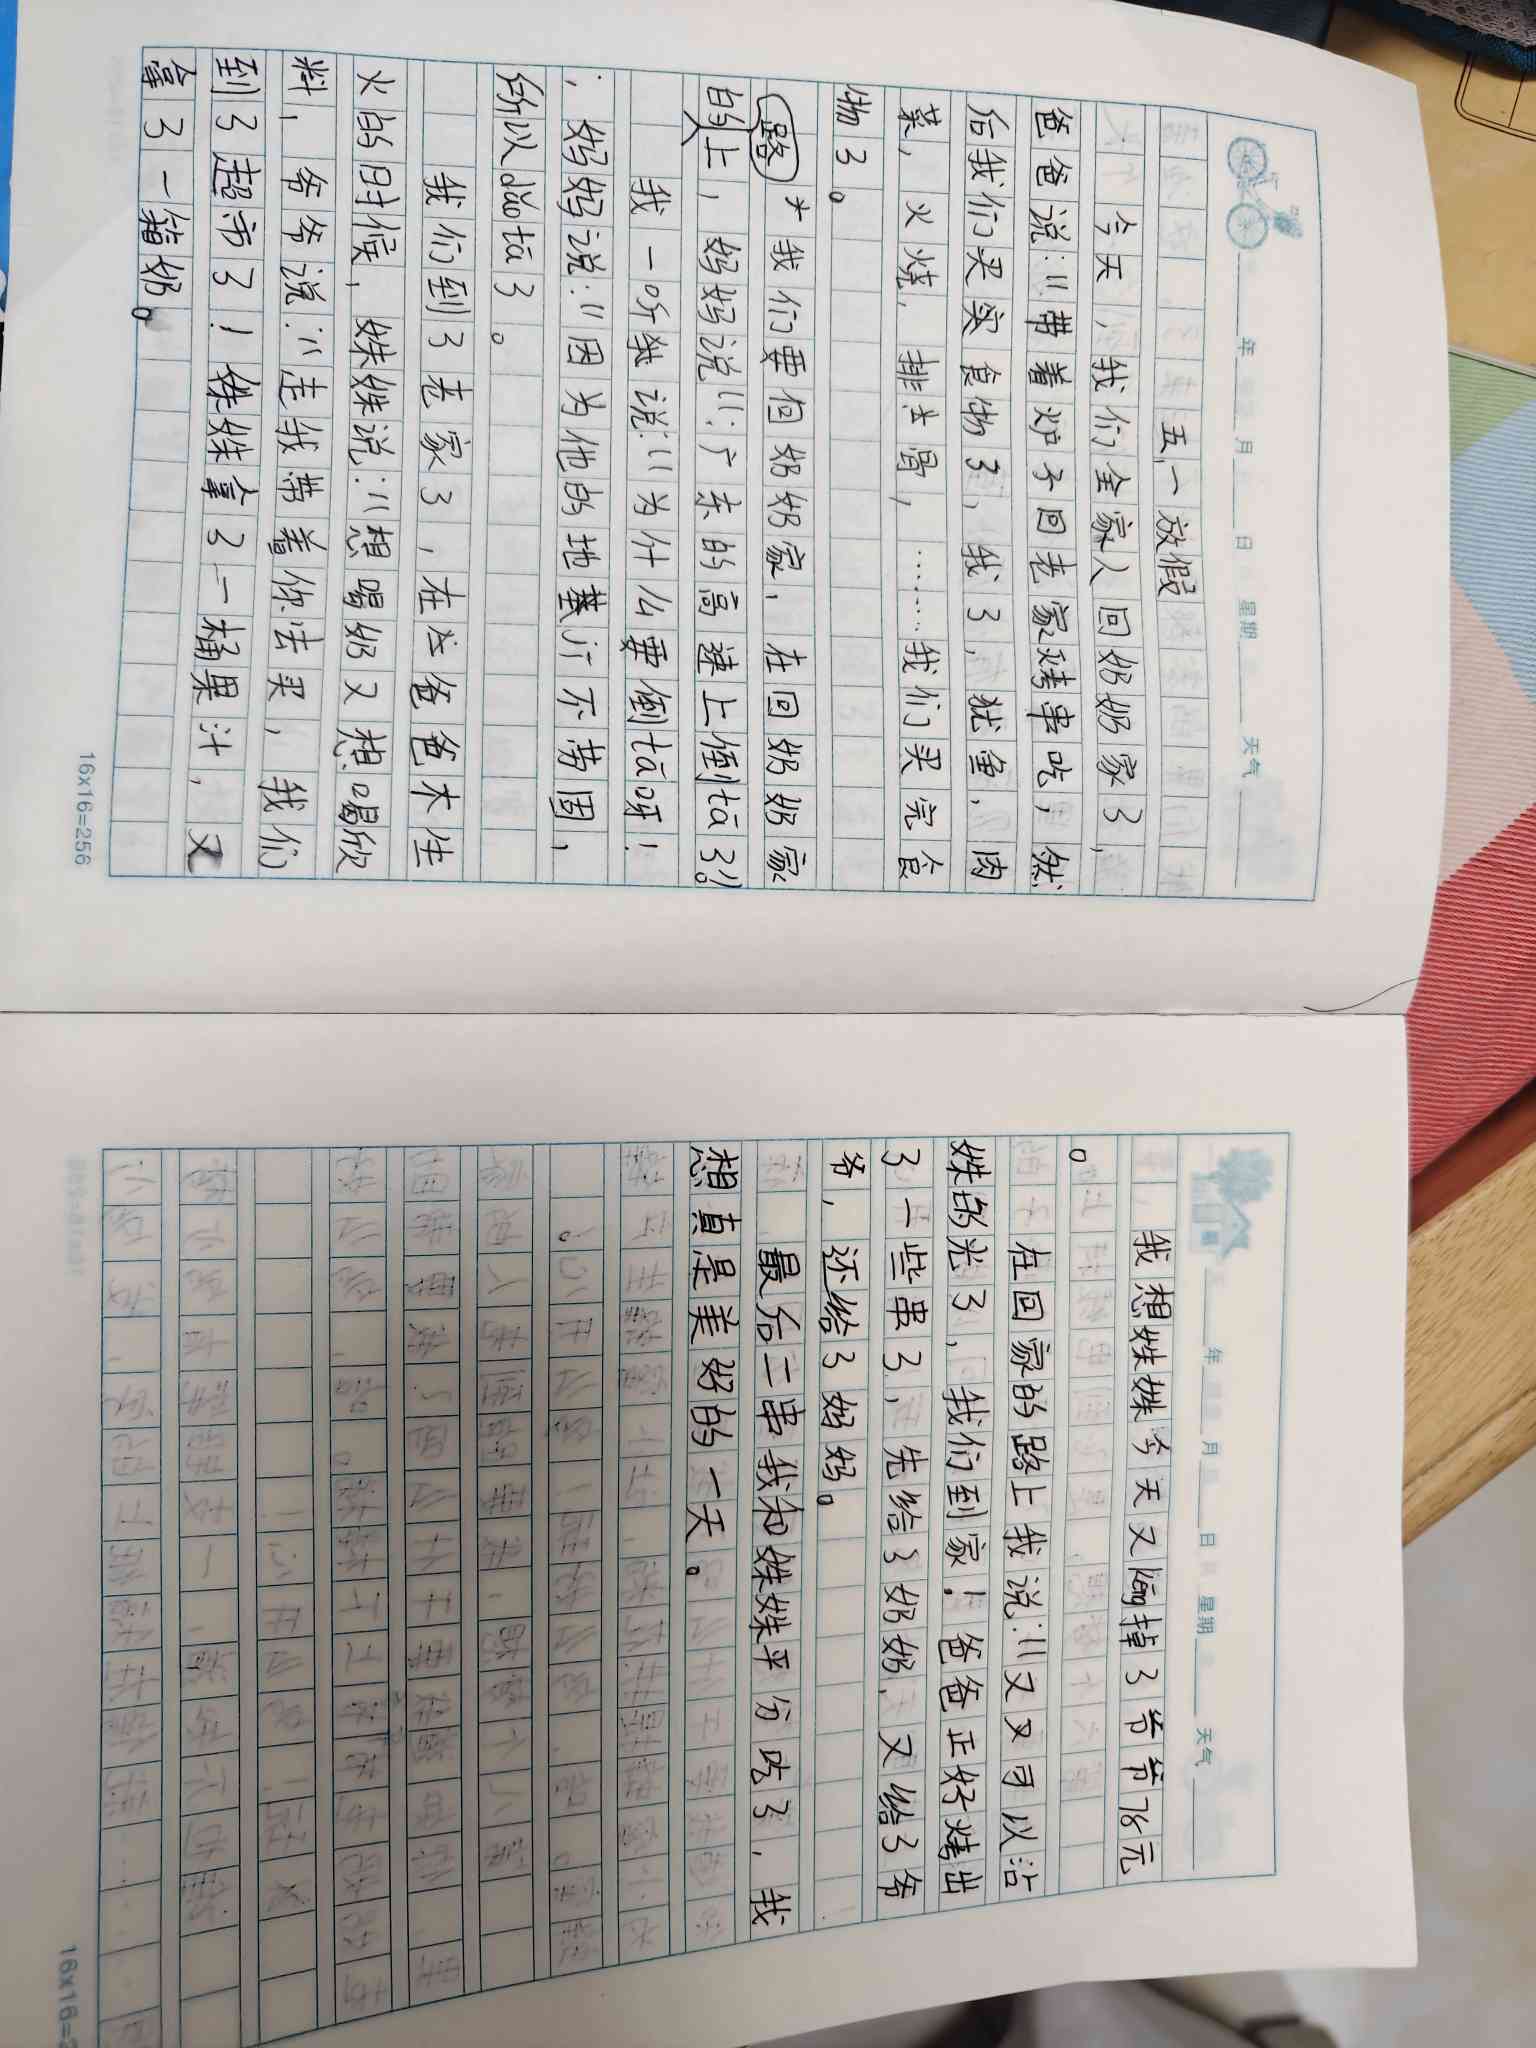 年 月 日 星期 天气
五一放假
今天,我们全家人回奶奶家了,
爸爸说:“带着炉子回老家烤串吃,然
后我们买实食物了,我了,犹鱼,肉
菜,火烧,排骨,……我们买完食
物了。
我们要但奶奶家,在回奶奶家
路
的上,妈妈说“:广东的高速上倒tā了!”
我一听就说:“为什么要倒tā呀!
”,妈妈说:“因为他的地基订不劳固,
所以dǎo tā了。
我们到了老家了,在爸爸木生
火的时候,姝姝说:“想喝奶又想喝欣
料,爷爷说:“走我带着你去买,我们
到了超市了!姝姝拿了一桶果汁,又
拿了一箱奶。
16×16=256
年 月 日 星期 天气
我想姝姝今天又kēng掉了爷爷78元
。
在回家的路上我说:“又又可以沾
姝的光了,我们到家!爸爸正好烤出
了一些串了,先给了奶奶,又给了爷
爷,还给了妈妈。
最后二串我和姝姝平分吃了,我
想真是美好的一天。
16×16=